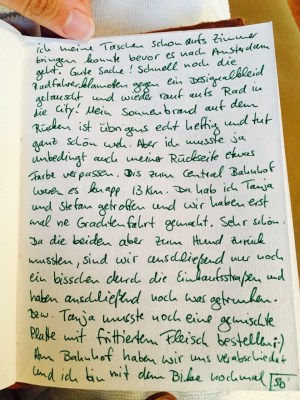 ich meine Taschen schon aufs Zimmer
bringen konnte bevor es nach Amsterdam
geht. Gute Sache! Schnell noch die
Radfahrerklamotten gegen ein Desigualkleid
getauscht und wieder rauf aufs Rad in
die City! Mein Sonnenbrand auf dem
Rücken ist übrigens echt heftig und tut
ganz schön weh. Aber ich musste ja
unbedingt auch meiner Rückseite etwas
Farbe verpassen. Bis zum Central Bahnhof
waren es knapp 13 Km. Da hab ich Tanja
und Stefan getroffen und wir haben erst
mal ne Grachtenfahrt gemacht. Sehr schön.
Da die beiden aber zum Hund zurück
mussten, sind wir anschließend nur noch
ein bisschen durch die Einkaufsstraßen und
haben anschließend noch was getrunken.
Bzw. Tanja musste noch eine gemischte
Platte mit frittiertem Fleisch bestellen ;-)
Am Bahnhof haben wir uns verabschiedet
und ich bin mit dem Bike nochmal 50